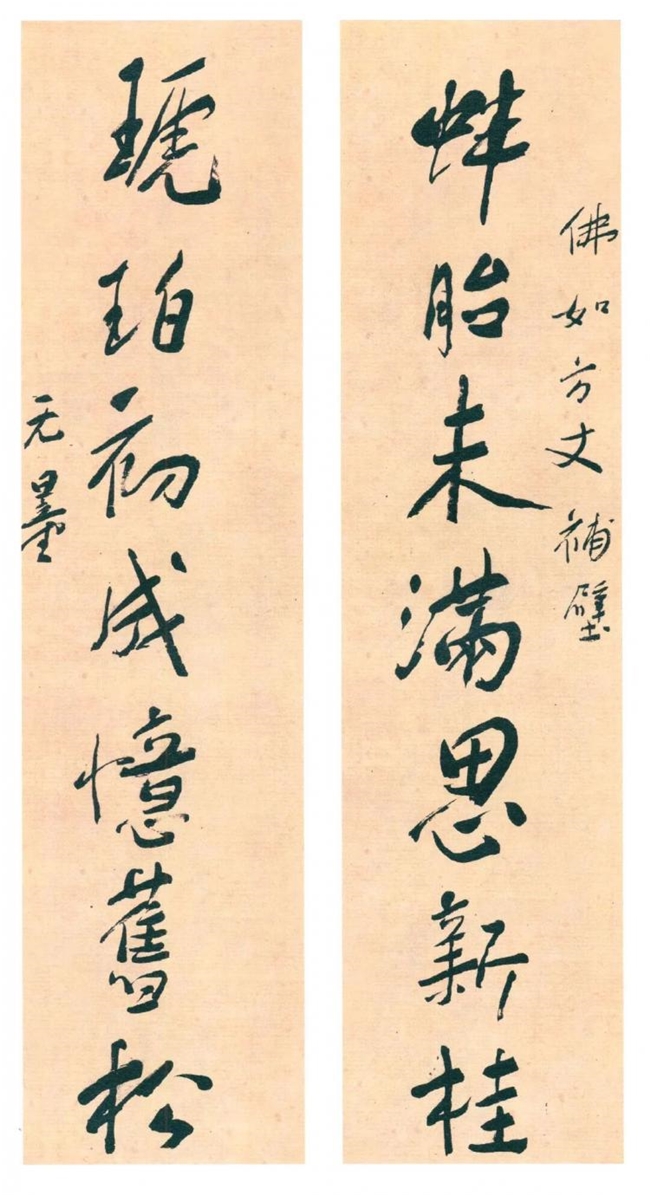 佛如方丈補壁
蚌胎未滿思新桂
琥珀初成憶舊松
无量